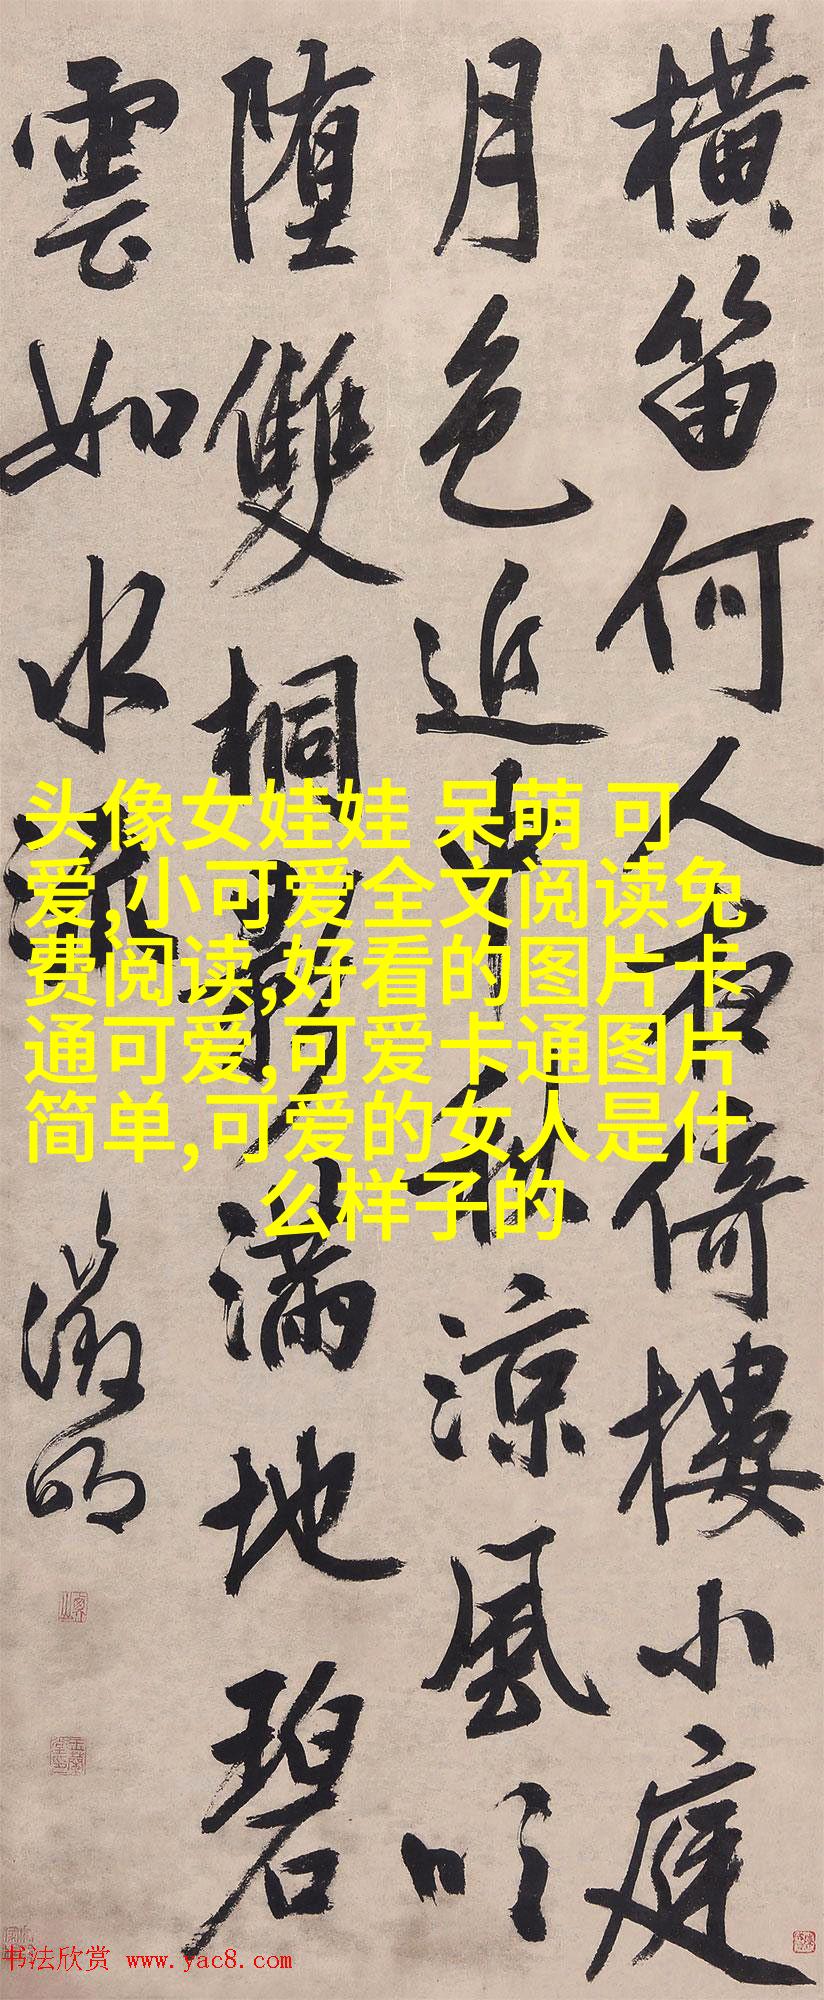 横笛何人夜倚樓小庭
月色近中秋涼風吹
堕雙桐影滿地碧
雲如水流
徵明
头像女娃娃 呆萌 可
爱,小可爱全文阅读免
费阅读,好看的图片卡
通可爱,可爱卡通图片
简单,可爱的女人是什
么样子的
书法欣赏 www.yac8.com